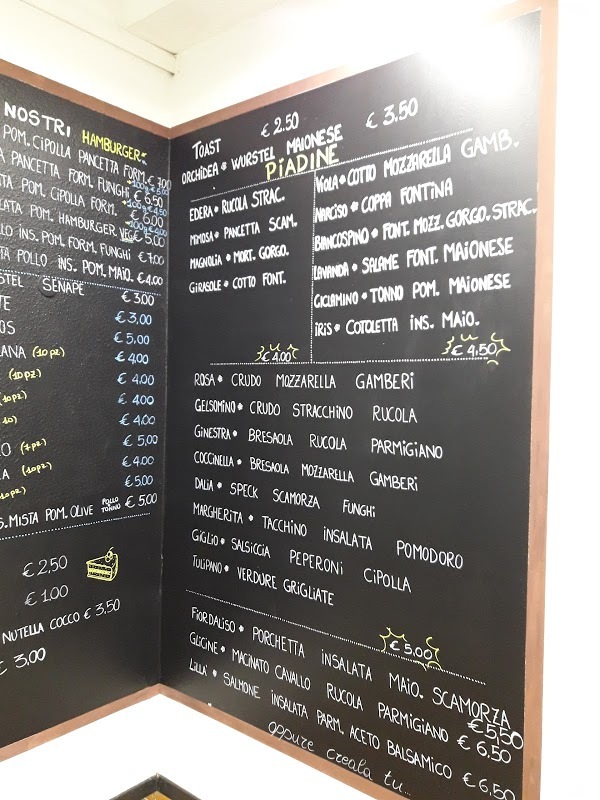 NOSTRI HAMBURGER
POM. CIPOLLA PANCETTA FORM. € 7.00
PANCETTA FORM. FUNGHI € 6.50
POM. CIPOLLA FORM. € 6.00
POM. HAMBURGER VEG € 5.00
INS. POM. FORM. FUNGHI € 7.00
POLLO INS. POM. MAIO. € 4.00
SENAPE € 3.00
€ 3.00
€ 5.00
(10 pz) € 4.00
(10 pz) € 4.00
(10 pz) € 4.00
€ 4.00
(7 pz) € 5.00
(10 pz) € 4.00
€ 5.00
MISTA POM. OLIVE POLLO TONNO € 5.00
€ 2.50
€ 1.00
NUTELLA COCCO € 3.50
€ 3.00
TOAST € 2.50
ORCHIDEA * WURSTEL MAIONESE € 3.50
PIADINE
EDERA * RUCOLA STRAC.
MIMOSA * PANCETTA SCAM.
MAGNOLIA * MORT. GORGO.
GIRASOLE * COTTO FONT.
€ 4.00
VIOLA * COTTO MOZZARELLA GAMB.
NARCISO * COPPA FONTINA
BIANCOSPINO * FONT. MOZZ. GORGO. STRAC.
LAVANDA * SALAME FONT. MAIONESE
CICLAMINO * TONNO POM. MAIONESE
IRIS * COTOLETTA INS. MAIO.
€ 4,50
ROSA * CRUDO MOZZARELLA GAMBERI
GELSOMINO * CRUDO STRACCHINO RUCOLA
GINESTRA * BRESAOLA RUCOLA PARMIGIANO
COCCINELLA * BRESAOLA MOZZARELLA GAMBERI
DALIA * SPECK SCAMORZA FUNGHI
MARGHERITA * TACCHINO INSALATA POMODORO
GIGLIO * SALSICCIA PEPERONI CIPOLLA
TULIPANO * VERDURE GRIGLIATE
€ 5,00
FIORDALISO * PORCHETTA INSALATA MAIO. SCAMORZA € 5,50
GLICINE * MACINATO CAVALLO RUCOLA PARMIGIANO € 6,50
LILLA' * SALMONE INSALATA PARM. ACETO BALSAMICO € 6,50
oppure creala tu...